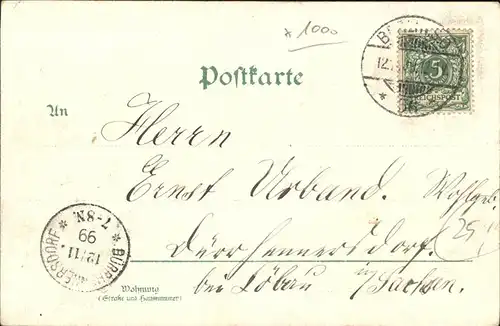 * 1000
Postkarte
5
REICHSPOST
An
Herrn
Ernst Urband. Wohlgeb.
Dürrhennersdorf.
bei Löbau i/Sachsen.
7-8N.
99
12/11
Wohnung
(Straße und Hausnummer)